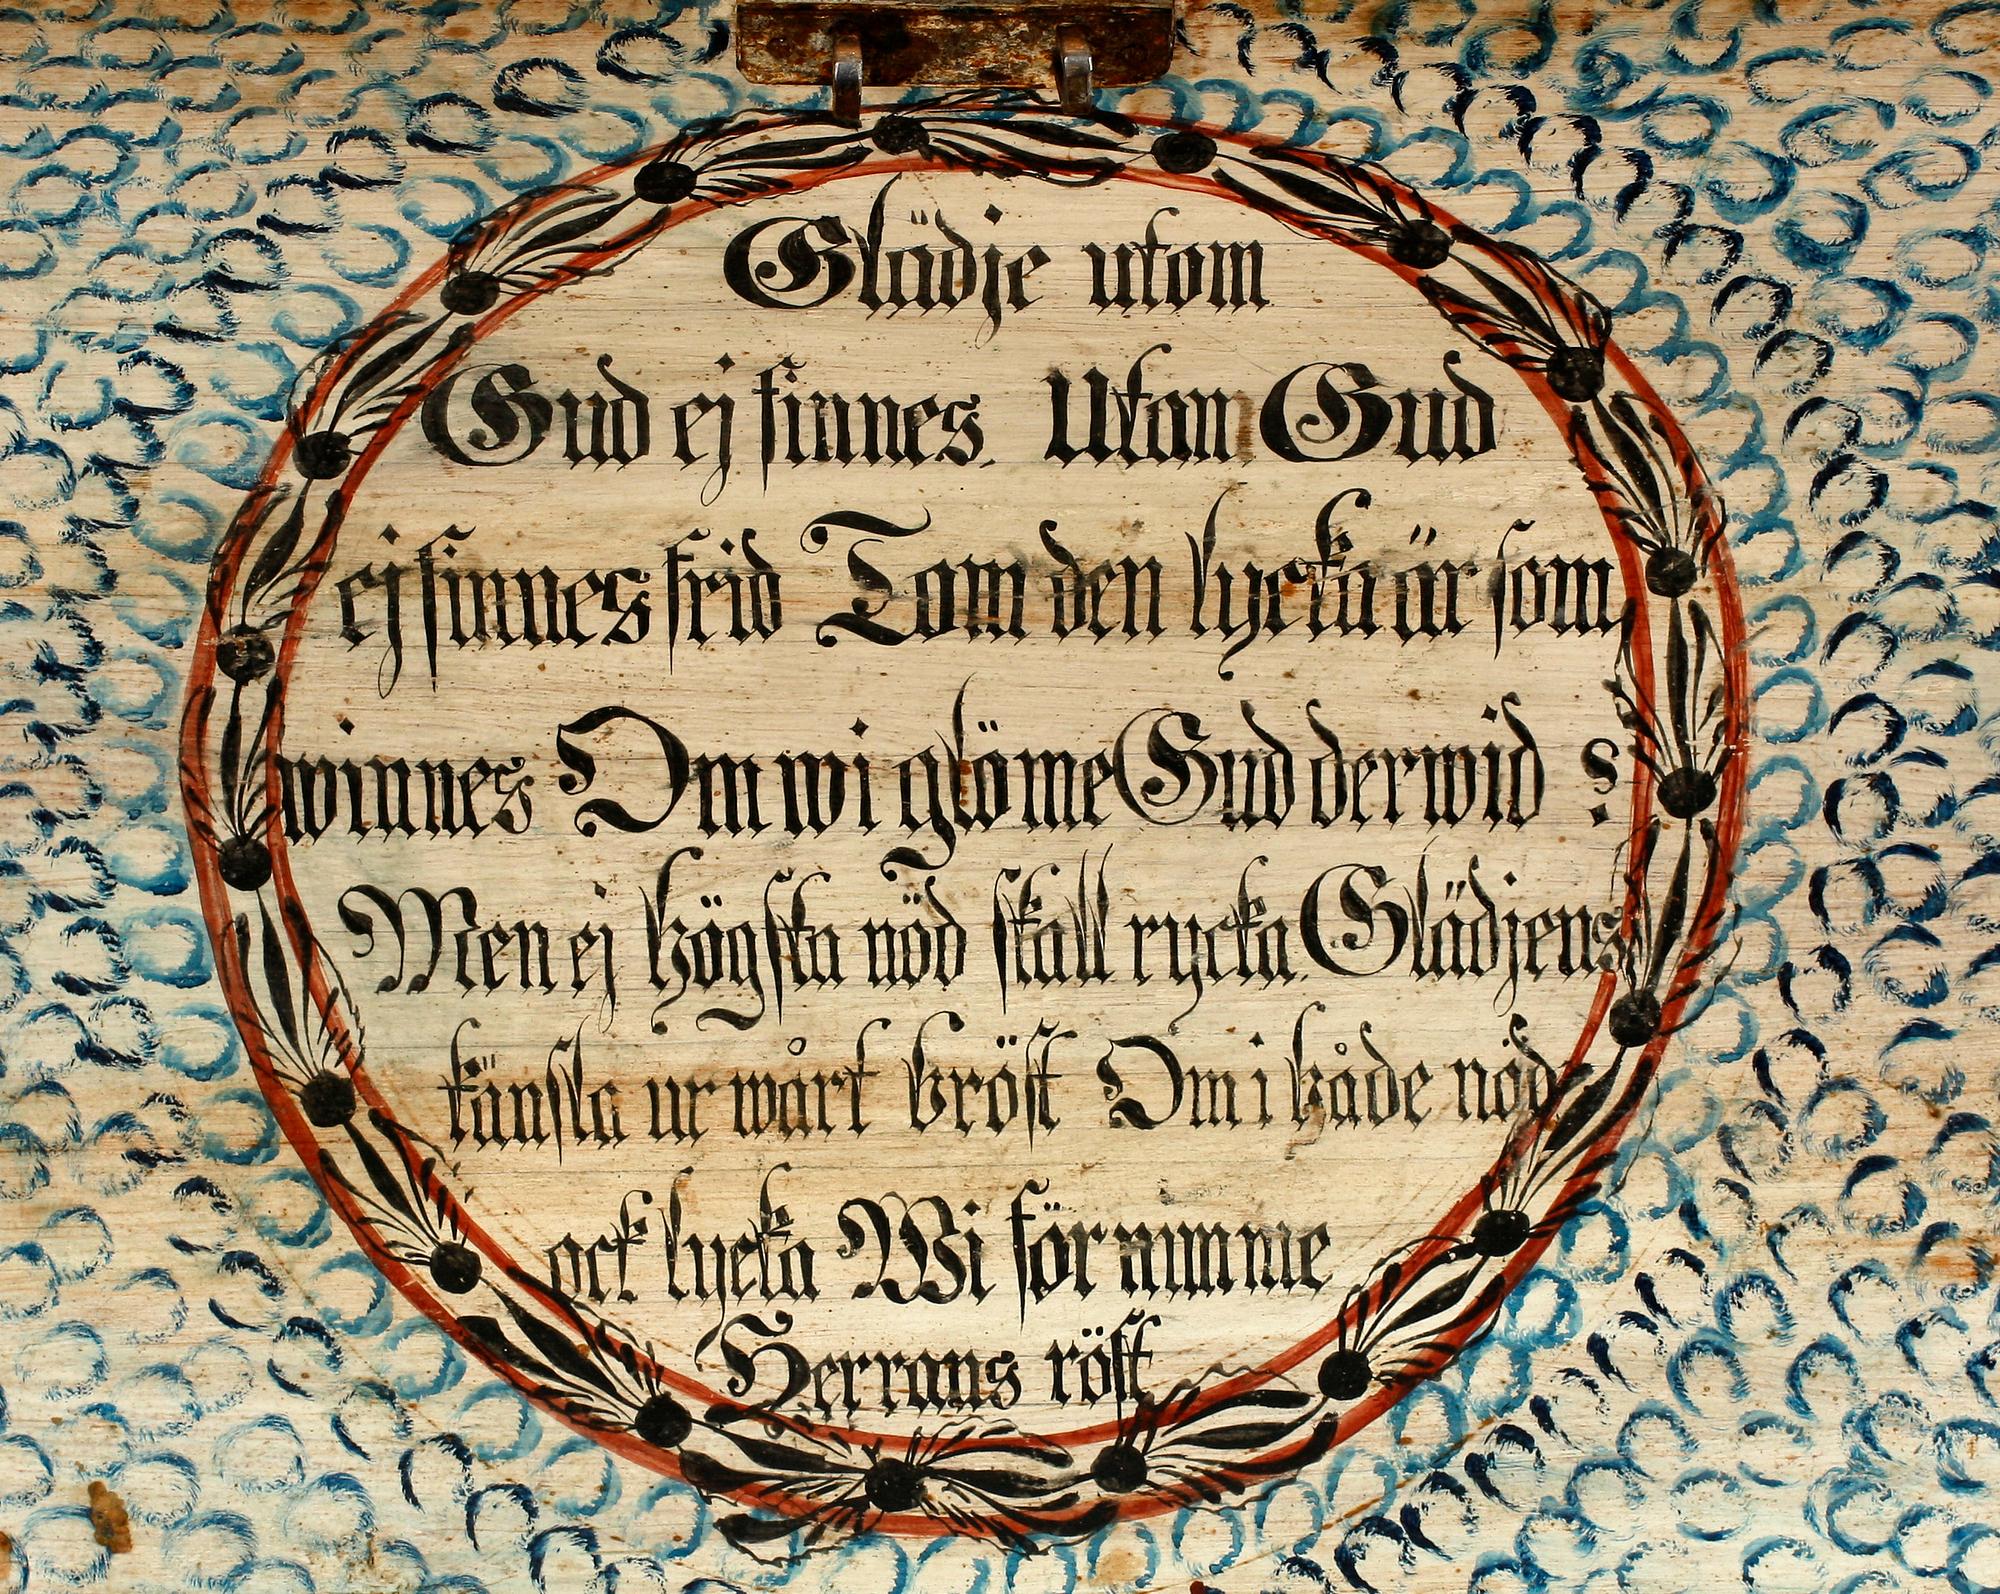 Glädje utom
Gud ej finnes. Utom Gud
ej finnes frid Tom den lycka är som
winnes Om wi glöme Gud derwid ?
Men ej högsta nöd skall rycka Glädjens
känsla ur wårt bröst Om i både nöd
ock lycka Wi förnimme
Herrans röst